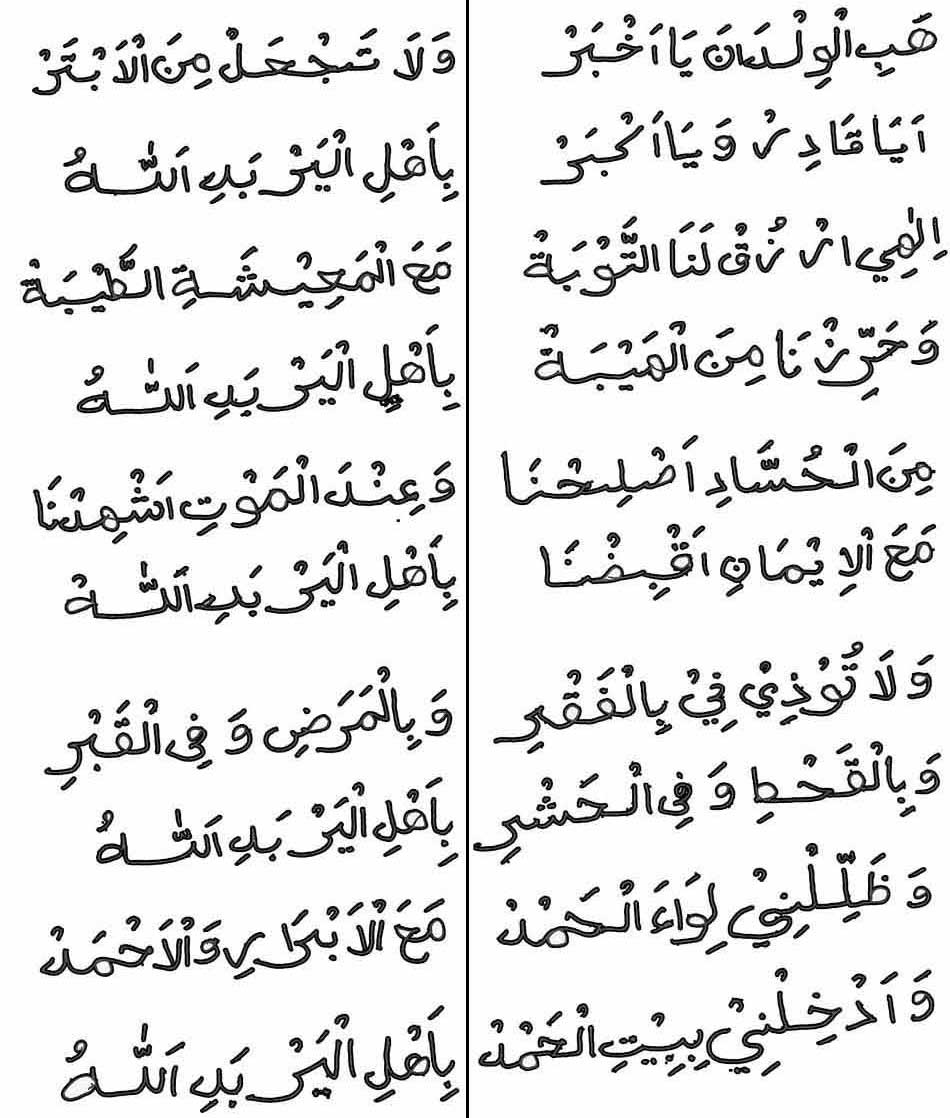 هَبِ الْوِلْدَانَ يَا اَخْبَرْ
وَلَا تَجْعَلْ مِنَ الْاَبْتَرْ
اَيَا قَادِرْ وَيَا اَكْبَرْ
بِاَهْلِ الْيَرْبَدِ اَللّٰهُ
اِلٰهِي ارْزُقْ لَنَا التَّوْبَةْ
مَعَ الْمَعِيْشَةِ الطَّيْبَةْ
وَحَرِّزْنَا مِنَ الْهَيْبَةْ
بِاَهْلِ الْيَرْبَدِ اَللّٰهُ
مِنَ الْحُسَّادِ اَصْلِحْنَا
وَعِنْدَ الْمَوْتِ اَشْهِدْنَا
مَعَ الْاِيْمَانِ اَقْبِضْنَا
بِاَهْلِ الْيَرْبَدِ اَللّٰهْ
وَلَا تُوْذِيْ فِيْ بِالْفَقْرِ
وَبِالْمَرَضِ وَفِى الْقَبْرِ
وَبِالْقَحْطِ وَفِى الْحَشْرِ
بِاَهْلِ الْيَرْبَدِ اَللّٰهُ
وَظَلِّلْنِيْ لِوَاءَ الْحَمْدْ
مَعَ الْاَبْرَارِ وَالْاَحْمَدْ
وَاَدْخِلْنِيْ بِبَيْتِ الْحَمْدْ
بِاَهْلِ الْيَرْبَدِ اَللّٰهُ